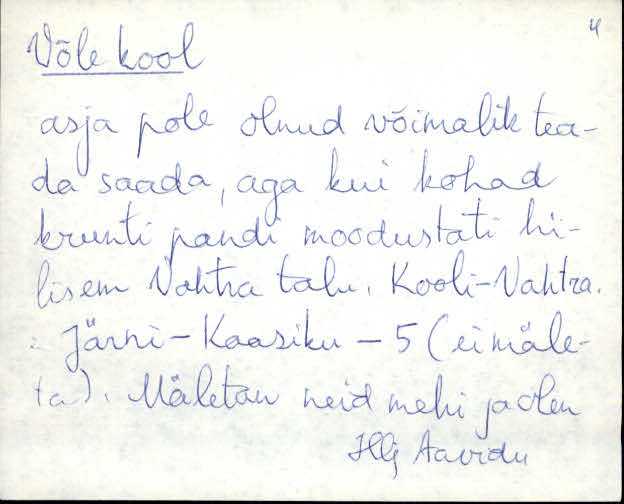 4
Võle kool
asja pole olnud võimalik tea-
da saada, aga kui kohad
krunti pandi moodustati hi-
lisem Vahtra talu. Kooli-Vahtra.
Järni-Kaasiku - 5 (ei mäle-
ta). Mäletan neid mehi ja olen
Aavidu